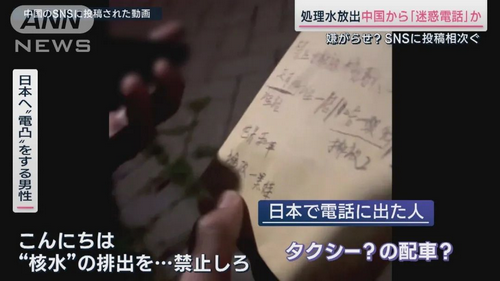 ANN
NEWS
中国のSNSに投稿された動画
処理水放出 中国から「迷惑電話」か
嫌がらせ? SNSに投稿相次ぐ
日本へ“電凸”をする男性
日本で電話に出た人
こんにちは
“核水”の排出を…禁止しろ
タクシー?の配車?